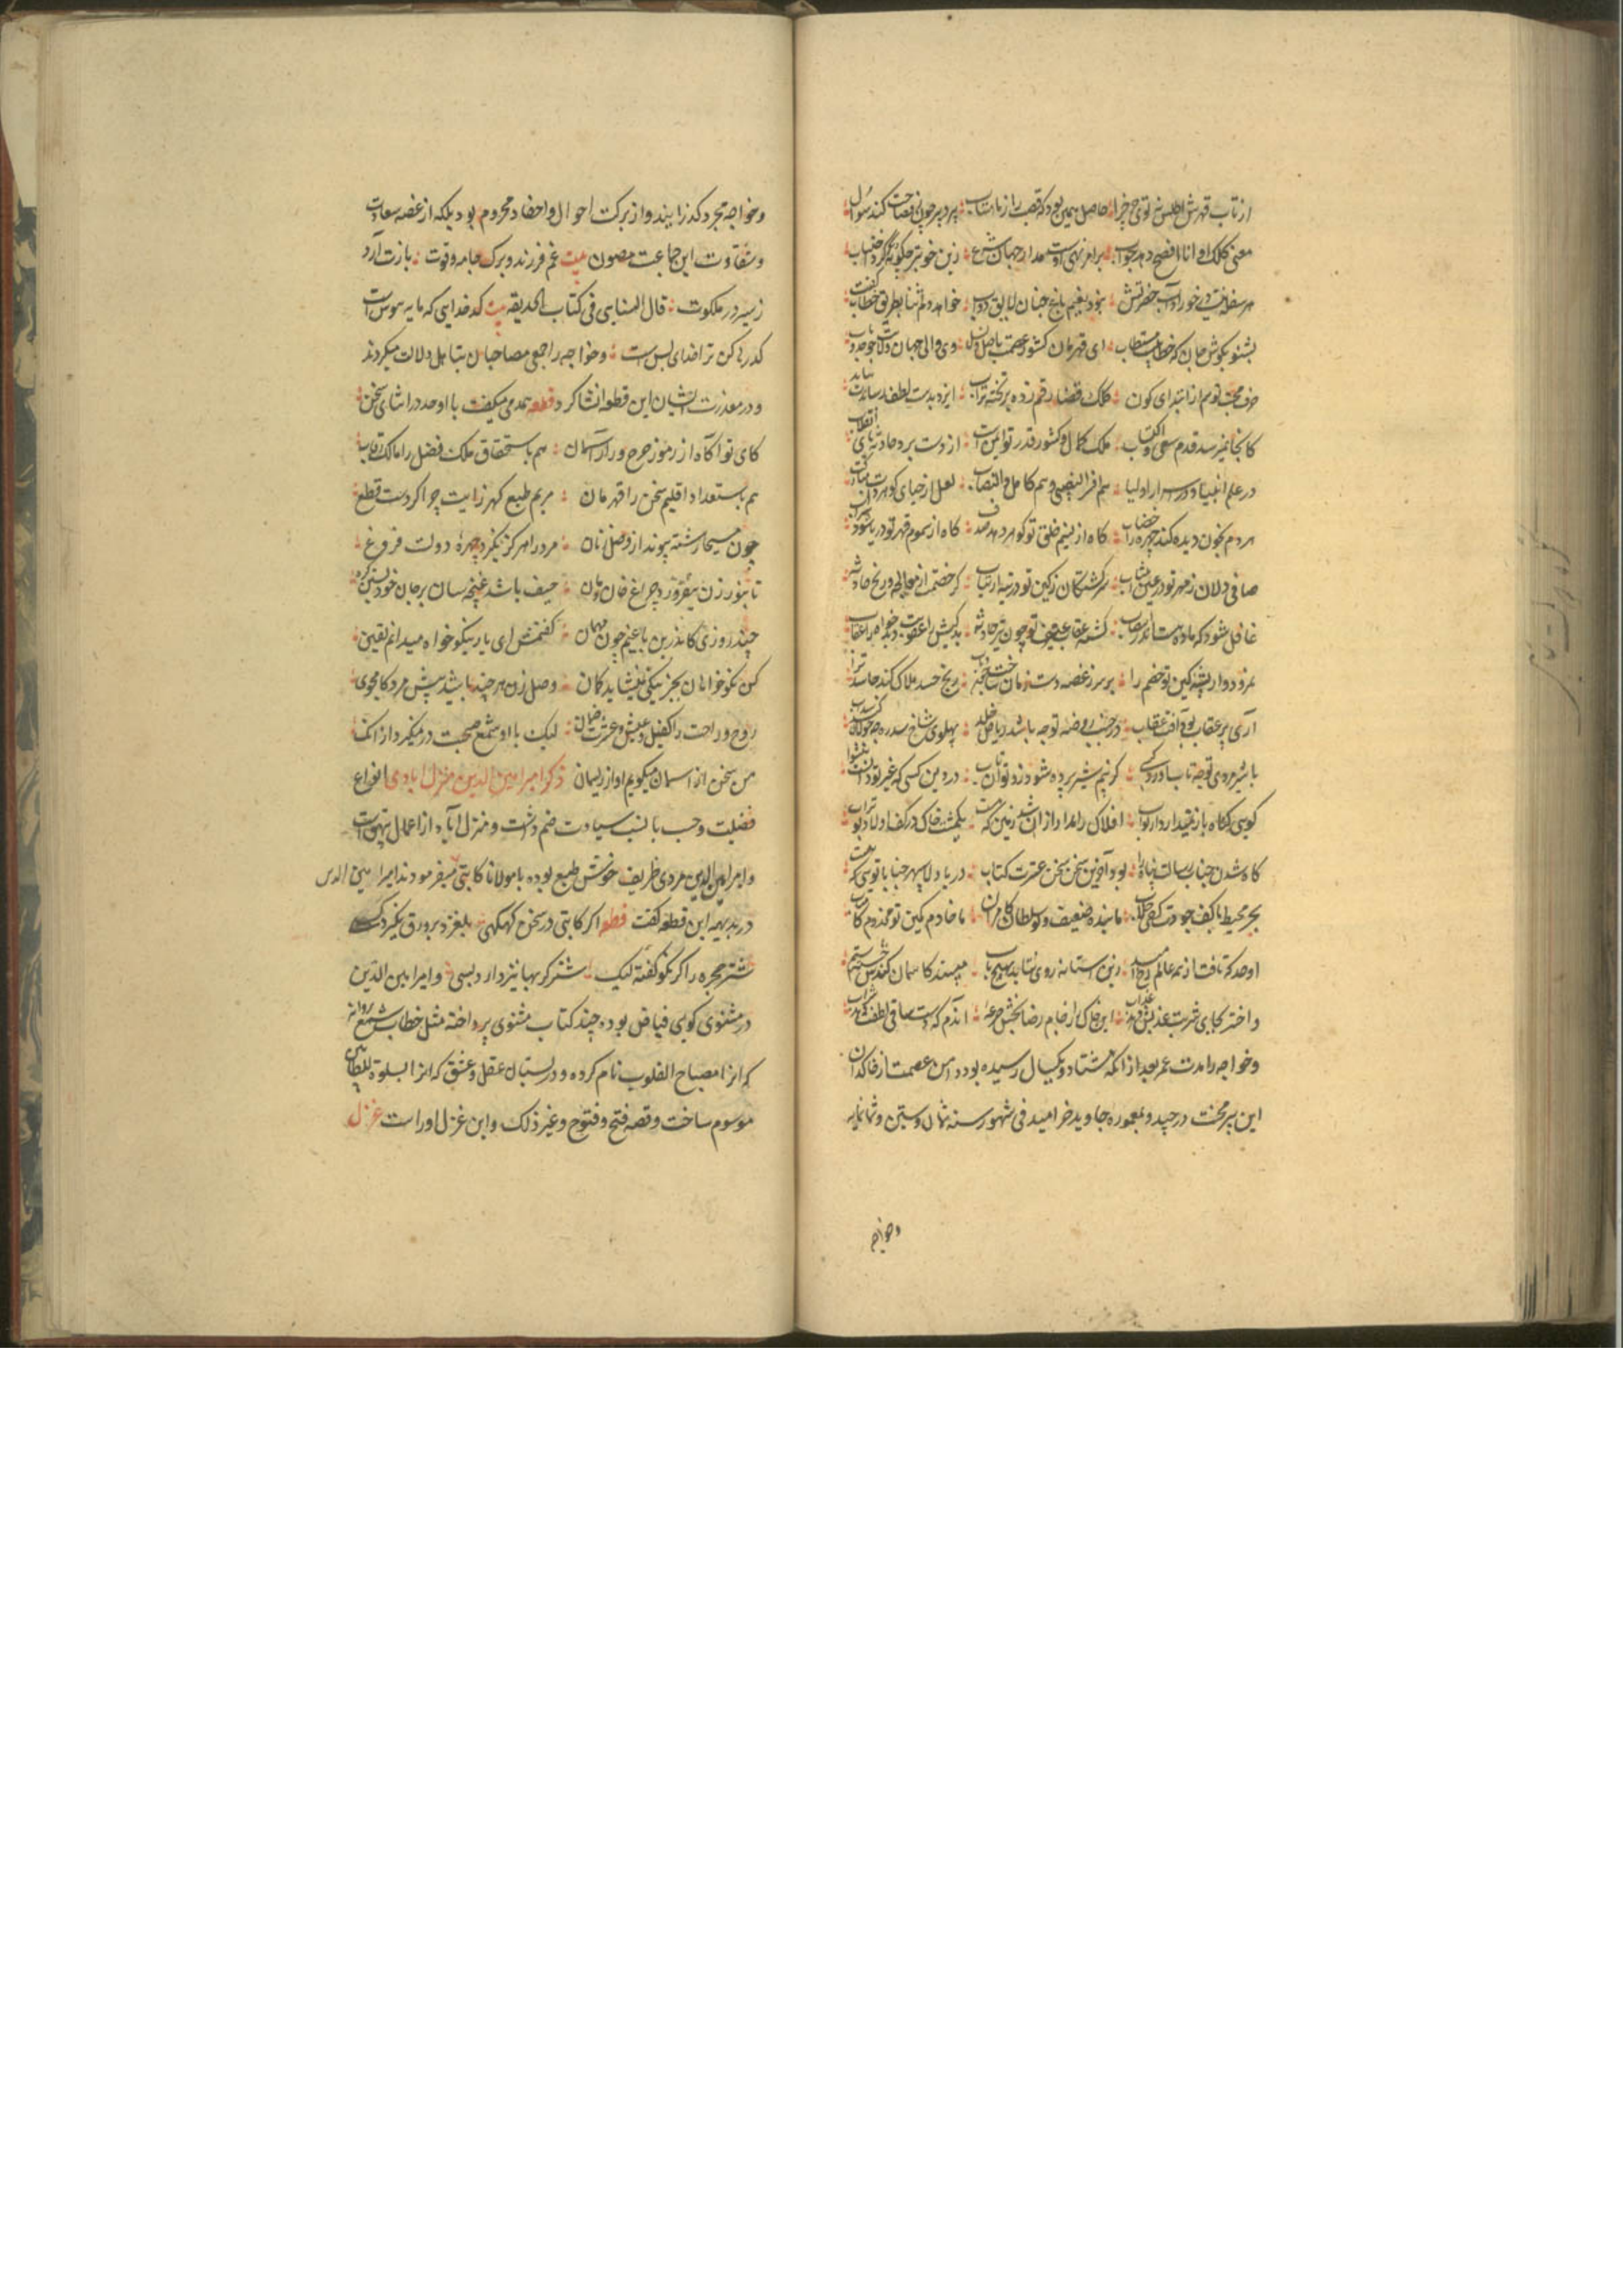 از تاب قهرش اطلس نه توی چرخ را حاصل همین بود که قصب را ز ماهتاب پیر دبیر چون ز فصاحت کند سؤال
معنی کلک او انا افصح دهد جواب بر امر نهی اوست مدار جهان شرع زین خوبتر چگونه کند احتساب
هر سفله نیست در خور آداب حضرتش نبود نعیم باغ جنان لایق دواب خواهد دلم ثنا بطریق خطاب گفت
بشنو بگوش جان که خطابیست مستطاب ای قهرمان کشور عصمت باصل و نسل وی والی جهان ولایت
حرف محبت توام از ابتدای کون کلک قضا رقم زده بر تخته تراب ایزد بدست لطف رساندت
کانجا نمیرسد قدم سعی و اکتساب ملک کمال و کشور قدر تو ایمن است از دست برد حادثه پای انقلاب
در علم انبیا و در اسرار اولیا هم افر النصیبی و هم کامل النصاب لعل از حیای گوهر
هر دم بخون دیده کند چهره را خضاب کاه از نسیم خلق تو گوهر دهد صدف کاه از سموم قهر تو دریا شود سراب
صافی دلان ز مهر تو در عین سرکشتکان ز کین تو در تیه ارتیاب
غافل شود که ماده هست اندر کشته عقاب
نمرود وار پشه کین تو خصم را بر سر ز غصه دست زنان ساخت رنج حسد هلاک کند حاسد ترا
آری پر عقاب بود آفت عقاب در جنب روضه تو چه باشد ریاض خلد پهلوی شاخ سدره چه
با شیر مردی تو چه تاب آورد کسی کز بیم شیر پرده شود زرد توان تاب در دین کسی که غیر تو دانست پیشوا
کویی کناه باز نقید اردار ثواب افلاک را مدار از آن شد زمین که هست یکمشت خاک در کف اولاد بوتراب
کاه شدن جناب رسالت پناه را بود آخرین سخن سخن عترت کتاب دریا دلا سپهر جنابا توئی که هست
بحر محیط با کف جودت کم از حباب ما بنده ضعیف و تو سلطان کامران ما خادم کمین تو مخدوم کامیاب
اوحد که تافت از همه عالم رخ امید زین آستانه روی نتابد بهیچ باب مپسند کاسمان کندش
و اختر بجای شربت عذبش دهد عذاب این خاک را ز جام رضا بخش جرعه آندم که هست ساقی لطف تو در شراب
وخواجه را مدت عمر بعد از انکه هشتاد و یکسال رسیده بود دامن عصمت از خاکدان
این پر محنت درچید و بمعموره جاوید خرامید فی شهور سنه ثمان و ستین و ثمانمایه
وخواجه
وخواجه مجرد کذرانیده و از برکت احوال و احفاد محروم بود بلکه از غصه سعادت
و شقاوت این جماعت مصون بیت غم فرزند و برک و جامه و قوت بازت آرد
ز سیر در ملکوت قال السنایی فی کتاب الحدیقه بیت کدخدایی که مایه هوس است
کد رها کن ترا خدای بس است وخواجه را جمعی مصاحبان بتاهل دلالت میکردند
و در معذرت ایشان این قطعه انشا کرد قطعه همدمی میکفت با اوحد در اثنای سخن
کای تو آکاه از رموز چرخ و راز آسمان هم باستحقاق ملک فضل را مالک رقاب
هم باستعداد اقلیم سخن را قهرمان مریم طبع کهر زایت چرا کردست قطع
چون مسیحا رشته پیوند از وصل زنان مرد را هرکز نگیرد چهره دولت فروغ
تا بنور زن نیفروزد چراغ خان و مان حیف باشد غنچه سان بر جان خود بستن کره
چند روزی کاندرین باغیم چون کل میهمان کفتمش ای یار نیکوخواه میدانم یقین
کز نکوخواهان بجز نیکی نیشاید کمان وصل زن هر چند باشد پیش مرد کامجوی
روح و راحت را کفیل و عیش و عشرت را ضمان لیک با او شمع صحبت در نمیکیرد از آنک
من سخن از آسمان میکویم او از ریسمان ذکر امیر امین الدین منزل ابادی انواع
فضیلت و حسب با نسب سیادت ضم داشت و منزل آباد از اعمال بیهق است
و امیر امین الدین مردی ظریف خوش طبع بوده با مولانا کاتبی میفرمودند امیر امین الدین
در بدیهه این قطعه کفت قطعه اکر کاتبی در سخن که کهی بلغزد برو دق نکیرد کسی
شتر حجره را کر نکو کفته لیک شتر کربها نیز دارد بسی و امیر امین الدین
در مثنوی کویی فیاض بوده چند کتاب مثنوی پرداخته مثل خطاب شمع و پروانه
که انرا مصباح القلوب نام کرده و داستان عقل و عشق که انرا سلوة الطالبین
موسوم ساخت و قصه فتح و فتوح و غیر ذلک و این غزل اوراست غزل